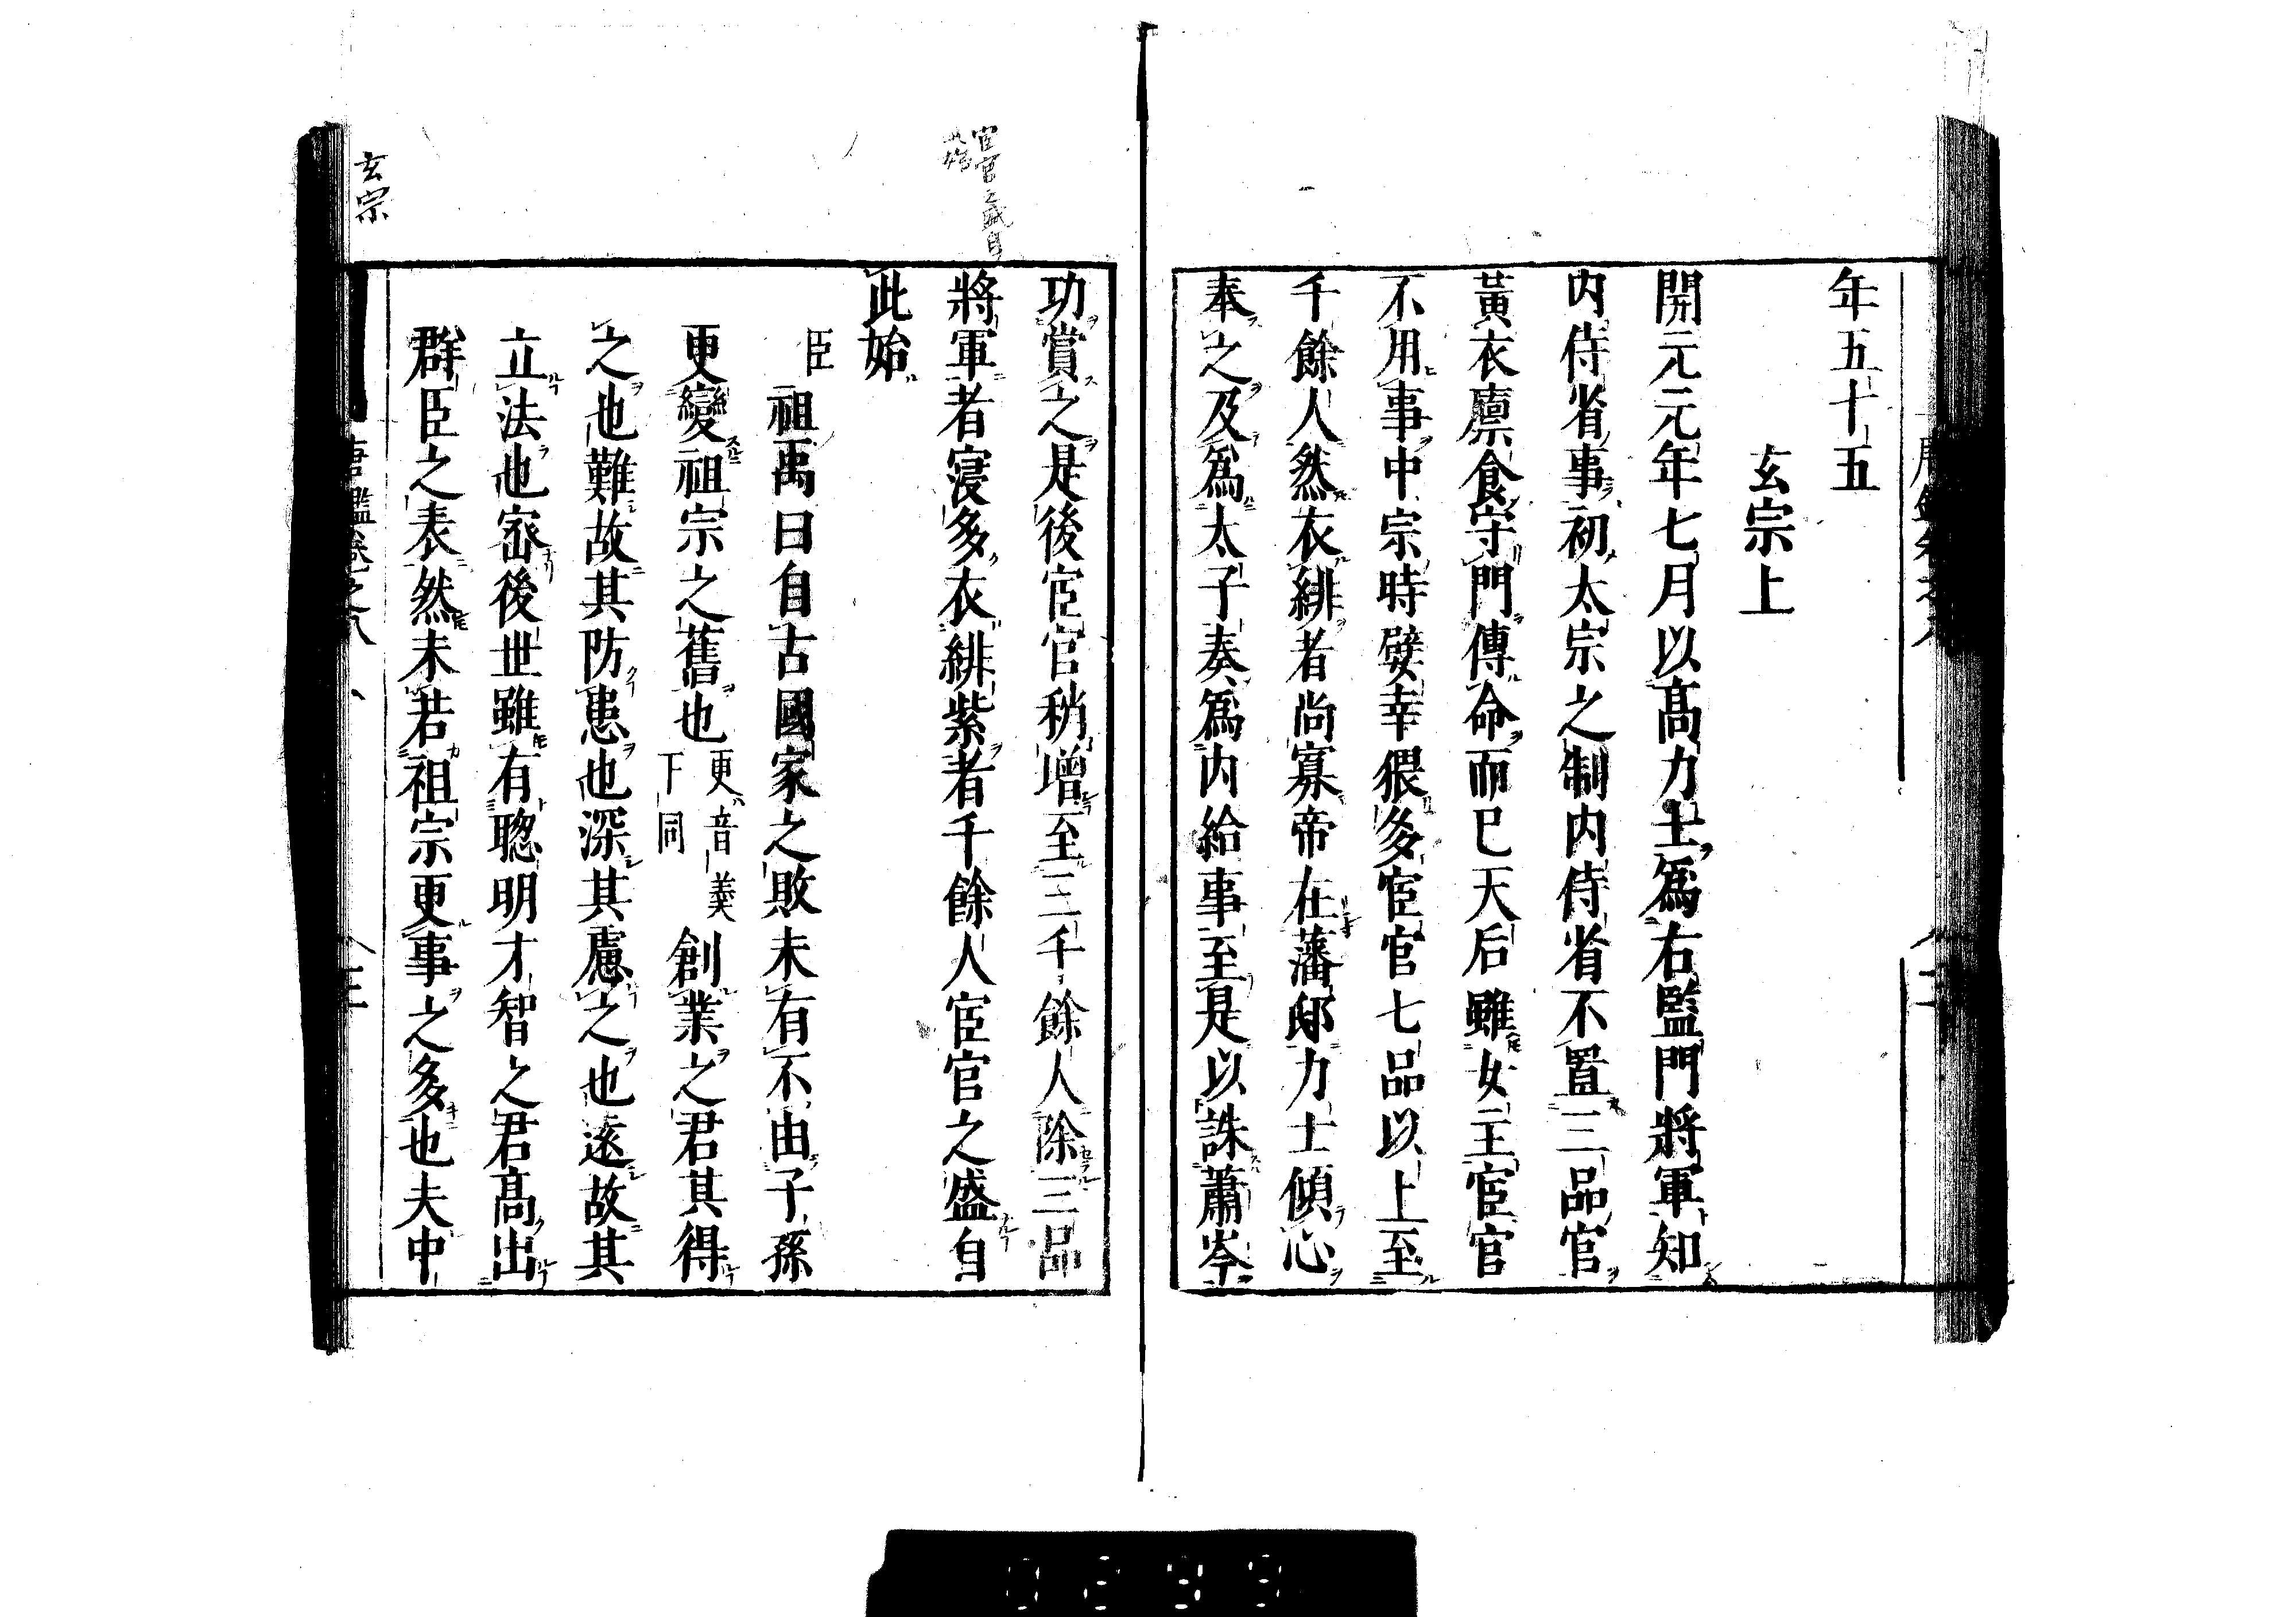 年五十五
玄宗上
開元元年七月以高力士爲右監門將軍知
内侍省事初太宗之制内侍省不置三品官
黃衣廩食守門傳命而已天后雖女主宦官
不用事中宗時嬖幸猥多宦官七品以上至
千餘人然衣緋者尚寡帝在藩邸力士傾心
奉之及爲太子奏爲内給事至是以誅蕭岑
功賞之是後宦官稍增至三千餘人除三品
將軍者寖多衣緋紫者千餘人宦官之盛自
此始
臣祖禹曰自古國家之敗未有不由子孫
更變祖宗之舊也更音羹下同創業之君其得
之也難故其防患也深其慮之也遠故其
立法也密後世雖有聰明才智之君高出
群臣之表然未若祖宗更事之多也夫中
唐鑑卷之八
玄宗
宦官之盛自
此始